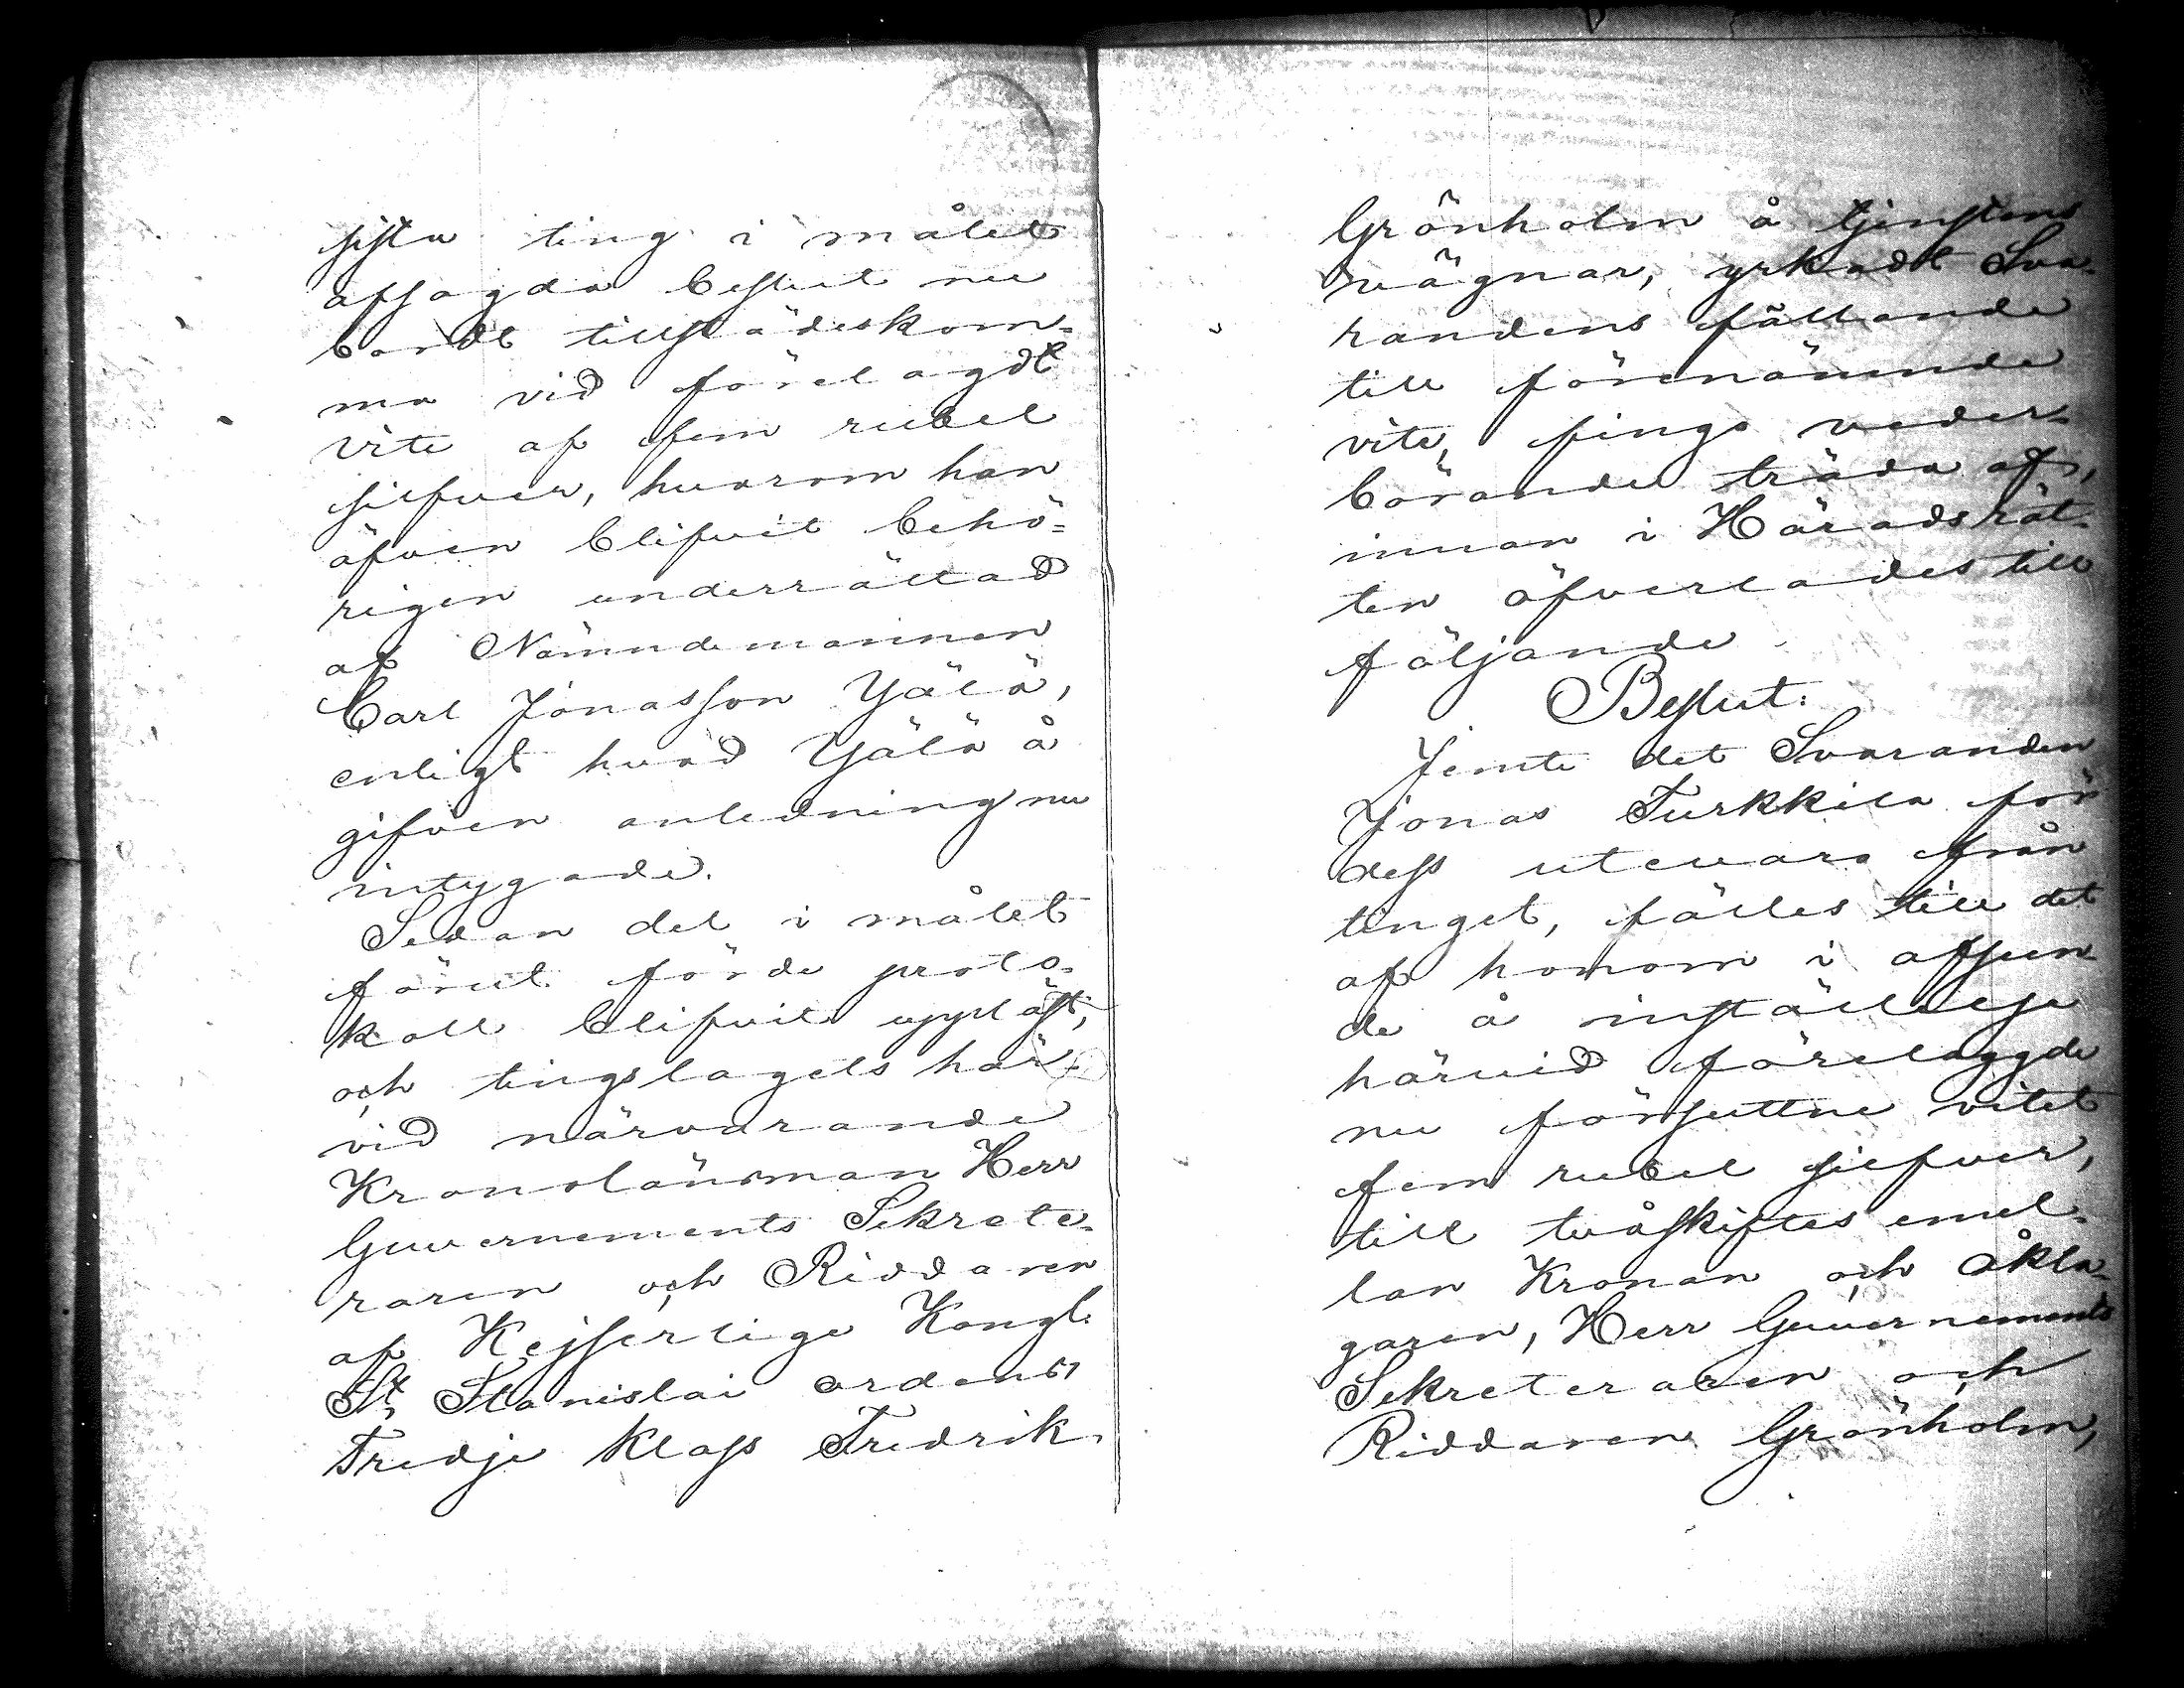 sista ting i målet
afsagda beslut nu
bordt tillstädeskom-
ma vid förelagdt
vite af fem rubel
silfver, hvarom han
äfven blifvit behö-
rigen underrättad
af Nämndemannen
Carl Jonasson Yälä,
enligt hvad Yälä å
gifven anledning nu
intygade.
Sedan det i målet
förut förda proto-
koll blifvit uppläst,
och tingslagets här-
vid närvarande
Kronolänsman Herr
Guvernements Sekrete-
raren och Riddaren
af Kejserliga Kongl.
St. Stanislai ordens
Tredje Klass Fredrik
Grönholm å tjenstens
vägnar, yrkadt Sva-
randens fällande
till förenämnde
vite, fingo veder-
börande träda af,
innan i Häradsrät-
ten öfverlades till
följande
Beslut:
Jemte det Svaranden
Jonas Turkkila för
dess utevaro från
tinget, fälles till det
af honom i afseen-
de å inställelse
härvid förelaggde
nu försuttne vitet
fem rubel silfver,
till tvåskiftes emel-
lan Kronan och åkla-
garen, Herr Guvernements
Sekreteraren och
Riddaren Grönholm,